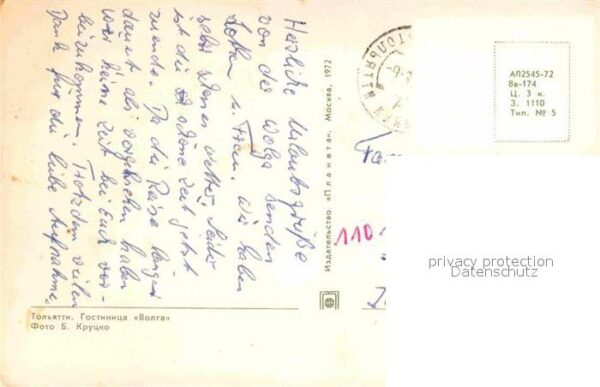 Herzliche Urlaubsgrüße
von der Wolga senden
Lothar u. Frau. Wir haben
sehr schönes Wetter. Leider
ist die schöne Zeit jetzt
zuende. Da die Reise länger
dauert als vorgesehen haben
wir keine Zeit bei Euch vor-
beizukommen. Trotzdem vielen
Dank für die liebe Aufnahme.
Тольятти. Гостиница «Волга»
Фото Б. Круцко
Издательство «Планета». Москва, 1972
110
ТОЛЬЯТТИ
А02545-72
8в-174
Ц. 3 к.
З. 1110
Тип. № 5
privacy protection
Datenschutz